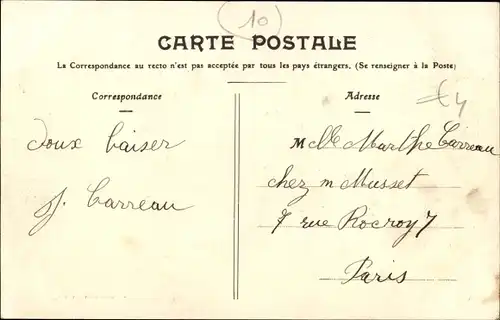 10
CARTE POSTALE
La Correspondance au recto n'est pas acceptée par tous les pays étrangers. (Se renseigner à la Poste)
Correspondance
Adresse
€4
doux baiser
J. Carreau
Melle Marthe Carreau
chez m Musset
7 rue Rocroy 7
Paris